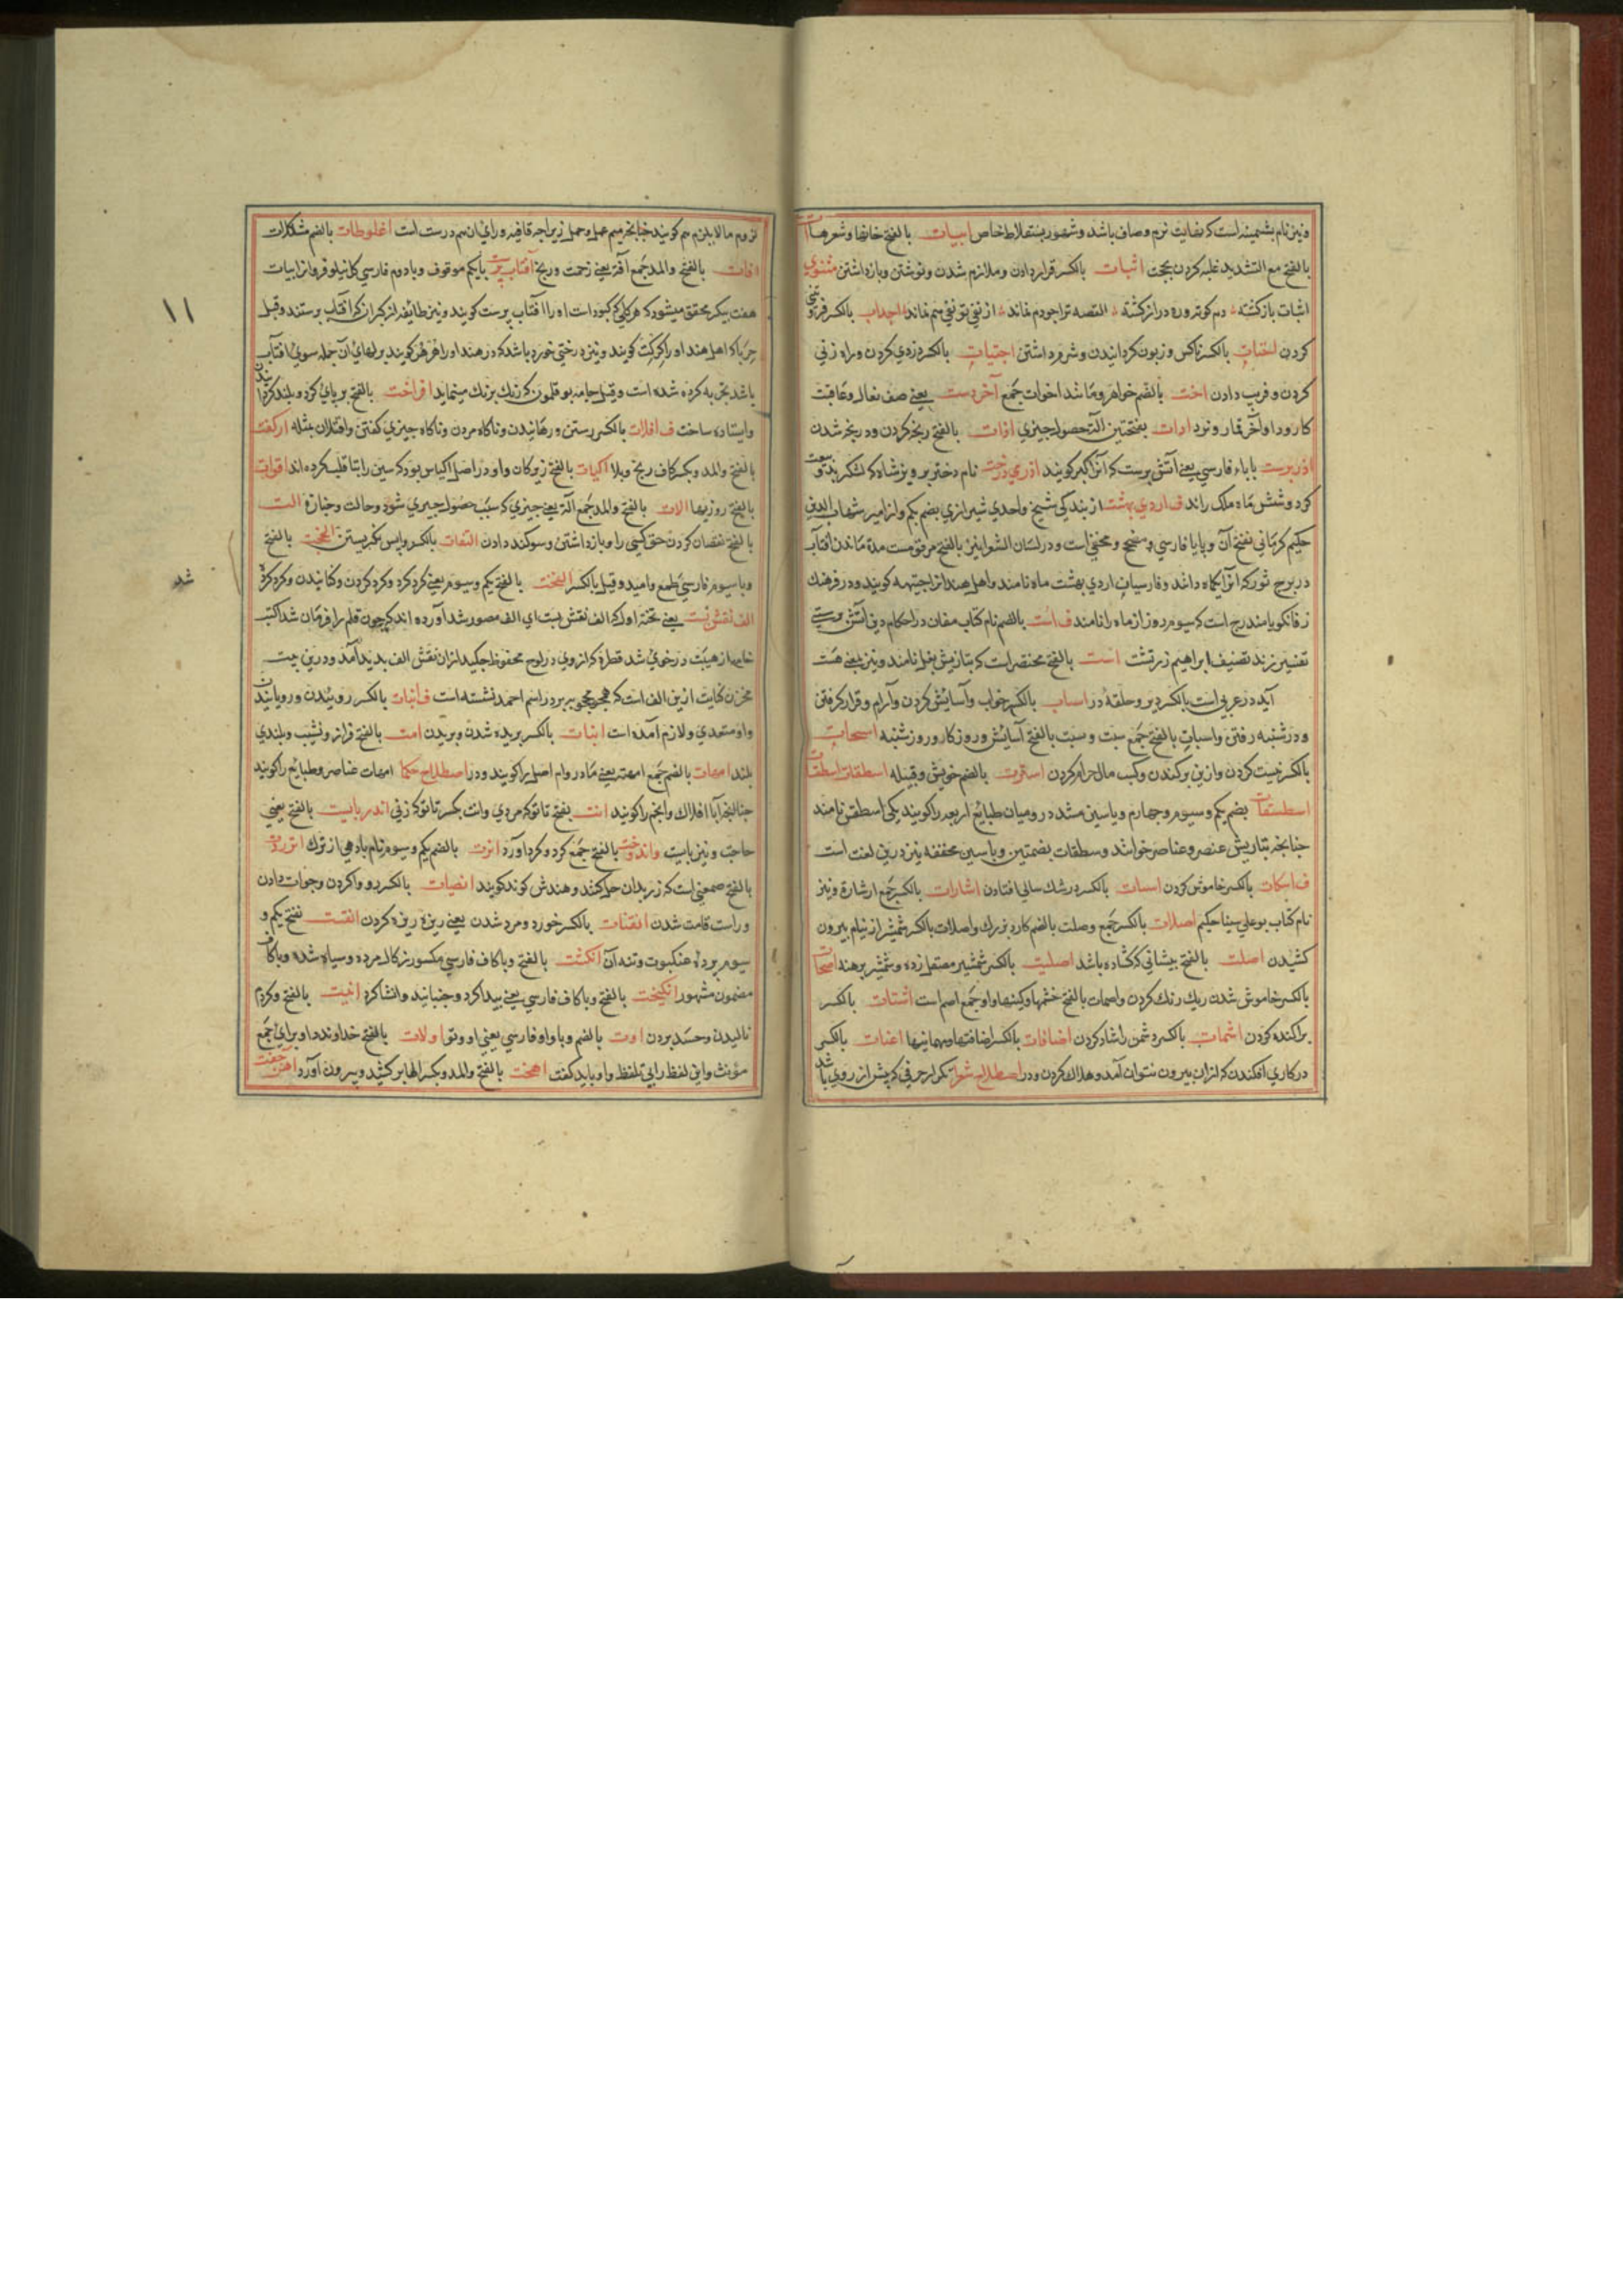 ونیز نام پشمینه است که بغایت نرم وصاف باشد وشهور بسقلاط خاص ابیات بالفتح خانها وشعرها
بالفتح مع التشدید غلبه کردن بحجت اثبات بالکسر قرار دادن وملازم شدن ونوشتن وبازداشتن مثنوی
اثبات باز کشته دم کوته وره دراز کشته القصه ترا جودم نماند از نفی تو نفی هم نماند بالکسر فروتنی
کردن اخبات بالکسر ناکس وزبون کردانیدن وشرم داشتن اجتیات بالکسر دزدی کردن وراه زنی
کردن وفریب دادن اخت بالضم خواهر ومانند اخوات جمع آخردست یعنی صف نعال وعاقبت
کار ودا وآخر قمار ونرد ادات بفتحتین آلت حصول چیزی اذات بالفتح رنجه کردن ورنجه شدن
اذرپرست باباء فارسی یعنی آتش پرست که آنرا کبر کویند اذری دخت نام دختر پرویز شاه که لشکر
کرد وشش ماه ملک راند ف اردی بهشت از بندکی شیخ واحدی شیرازی بضم یکم واز امیر شهاب الدین
حکیم کرمانی بفتح آن وپایا فارسی ومصحح ومحقق است ودر لسان الشعرا نیز بالفتح مرقوم ست مدة ماندن افتاب
در برج ثور که آنرا کاه دانند وفارسیان اردی بهشت ماه نامند واهل هند انرا جیتهه کویند ودر فرهنک
زفانکویا مندرج است که سیوم روز از ماه را نامند ف است بالضم نام کتاب مغان در احکام دین آتش پرستی
تفسیر زند تصنیف ابراهیم زرتشت است بالفتح مختصر است که بتازیش بغل نامند ونیز بمعنی هست
آید در عربی است بالکسر دبر وحلقه در اسبات بالکسر خواب وآسایش کردن وآرام وقرار کرفتن
ودر شنبه رفتن واسبات بالفتح جمع سبت وسبت بالفتح آسایش وروزکار وروز شنبه اسحات
بالکسر نیست کردن وازبن برکندن وکسب مال حرام کردن استرت بالضم خویش وقبیله اسطقات
اسطقسات بضم یکم وسیوم وچهارم ویاسین مشدد رومیان طبائع اربعه را کویند یکی اسطقس نامند
چنانچه بتازیش عنصر وعناصر خوانند وسطقات بضمتین وباسین مخففه نیز درین لغت است
ف اسکات بالکسر خاموش کردن اسنات بالکسر در شک سالی افتادن اشارات بالکسر جمع ارشارة ونیز
نام کتاب بوعلی سینا حکیم اصلات بالکسر جمع وصلت بالضم کارد بزرك واصلات بالکسر شمشیر از نیام بیرون
کشیدن اصلت بالفتح پیشانی که کشاده باشد اصلیت بالکسر شمشیر مصقل زده وشمشیر برهنه
بالکسر خاموش شدن ریك رنك کردن واصمات بالفتح خشمها وکینها واو جمع اصم است اشتات بالکسر
پراکنده کردن اشمات بالکسر دشمن را شاد کردن اضافات بالکسر اضافتها ومهمانیها اعنات بالکسر
در کاری افکندن که از ان بیرون نتوان آمد وهلاك کردن ودر اصطلاح شعرا تکرار حرفی که پیش از روی باشد
لزوم ما لا یلزم هم کویند چنانچه میم عمل وحمل زیرا چه قافیه ورای ان هم درست است اغلوطات بالضم مشکلات
افات بالفتح والمد جمع آفة یعنی زحمت ورنج آفتاب پرست بایکم موقوف وبا دوم فارسی کل نیلوفر واز ابیات
هفت پیکر محقق میشود که هر کلی که کبود است او را آفتاب پرست کویند ونیز طائفه از کبران که آفتاب پرستند وقیل
حربا که اهل هند او را کرکت کویند ونیز درختی خورد باشد که در هند او را هرهر کویند برکهای آن جمله سوی افتاب
باشد تجربه کرده شده است وقیل جامه بوقلمون که رنك برنك مینماید افراخت بالفتح برپای کرد وبلند کردانیدن
وایستاده ساخت ف افلات بالکسر رستن ورهانیدن وناکاه مردن وناکاه چیزی کفتن وافتلات مثله
بالفتح والمد وبکسر کاف رنج وبلا اکیات بالفتح زیرکان واو در اصل اکیاس بود که سین را بتا قلب کرده اند اقوات
بالفتح روزیها الات بالفتح والمد جمع آلة یعنی چیزی که سبب حصول چیزی شود وحالت وجنازه الت
بالفتح نقصان کردن حق کسی را وبازداشتن وسوکند دادن التفات بالکسر واپس نکریستن بالفتح
وبا سیوم فارسی طمع وامید وقیل بالکسر البخت بالفتح یکم وسیوم یعنی کرد کرد وکرد کردن
الف نقش بست یعنی تخته اول که الف نقش بست ای الف مصور شد آورده اند که چون قلم را فرمان شد اکتب
خامه از هیبت در خوی شد قطره که از وی در لوح محفوظ چکید از ان نقش الف پدید آمد ودرین بیت
مخزن کنایت ازین الف است که بر سر در اسم احمد نشسته است ف انبات بالکسر روئیدن ورویانیدن
واو متعدی ولازم آمده است انبتات بالکسر بریده شدن وبریدن امت بالفتح فراز ونشیب وبلندی
بلند امهات بالضم جمع امهة یعنی مادر وام اصل را کویند ودر اصطلاح حکما امهات عناصر وطبائع را کویند
چنانچه آبا افلاك وانجم را کویند انت بفتح تا تو که مردی وانت بکسر تا تو که زنی اندربایست بالفتح یعنی
حاجت ونیز بایست واندوخت بالفتح جمع کرد وکرد آورد انزت بالضم یکم وسیوم نام بادهی از ترك
بالفتح صمغی است که زر بدان حل کنند وهندش کوند کویند انصات بالکسر وجواب دادن
وراست قامت شدن انفتات بالکسر خورد ومرد شدن یعنی ریزه ریزه کردن بفتح یکم و
سیوم پرده عنکبوت وتنه آن انکشت بالفتح وباکاف فارسی مکسور زکال مرده وسیاه شده وباکاف
مضموم مشهور انکیخت بالفتح وباکاف فارسی یعنی پیدا کرد وجنبانید وانشا کرد انیت بالفتح
نالیدن وحسد بردن اوت بالضم وباواو فارسی یعنی او وتو اولات بالفتح خداوند واو برای جمع
مؤنث واین لفظ را بی تلفظ واو باید کفت اهخت بالفتح والمد وبکسر الها برکشید وبیرون آورد
۱۱
شد